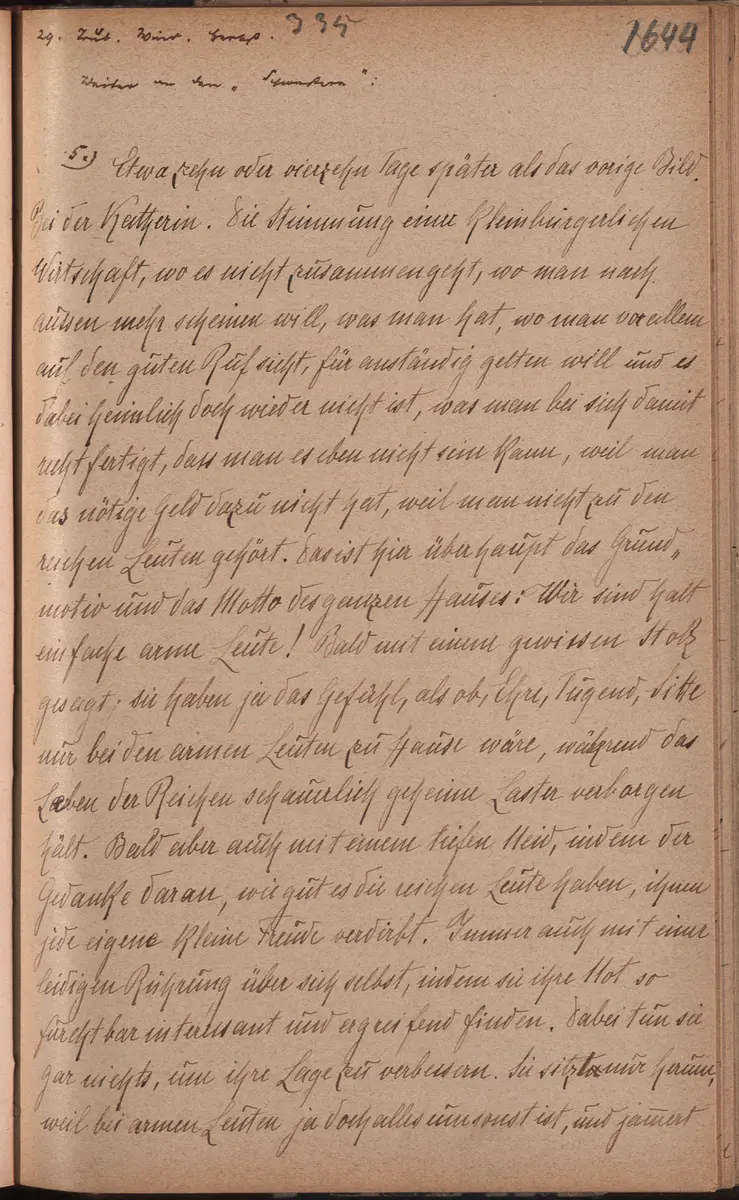 335
1644
29. Trüb. Wind.
Weiter an den „Schwestern“:
5.) Etwa zehn oder vierzehn Tage später als das vorige Bild.
Bei der Katherin. Die Stimmung einer kleinbürgerlichen
Wirtschaft, wo es nicht zusammengeht, wo man nach
aussen mehr scheinen will, was man hat, wo man vor allem
auf den guten Ruf sieht, für anständig gelten will und es
dabei heimlich doch wieder nicht ist, was man bei sich damit
rechtfertigt, dass man es eben nicht sein kann, weil man
das nötige Geld dazu nicht hat, weil man nicht zu den
reichen Leuten gehört. Das ist hier überhaupt das Grund„
motiv und das Motto des ganzen Hauses: Wir sind halt
einfache arme Leute! Bald mit einem gewissen Stolz
gesagt; sie haben ja das Gefühl, als ob, Ehre, Tugend, Sitte
nur bei den armen Leuten zu Hause wäre, während das
Leben der Reichen schauerlich geheime Laster verborgen
hält. Bald aber auch mit einem tiefen Neid, indem der
Gedanke daran, wie gut es die reichen Leute haben, ihnen
jede eigene kleine Freude verdirbt. Immer auch mit einer
leidigen Rührung über sich selbst, indem sie ihre Not so
furchtbar interessant und ergreifend finden. Dabei tun sie
gar nichts, um ihre Lage zu verbessern. Sie sitzt nur herum,
weil bei armen Leuten ja doch alles umsonst ist, und jamert